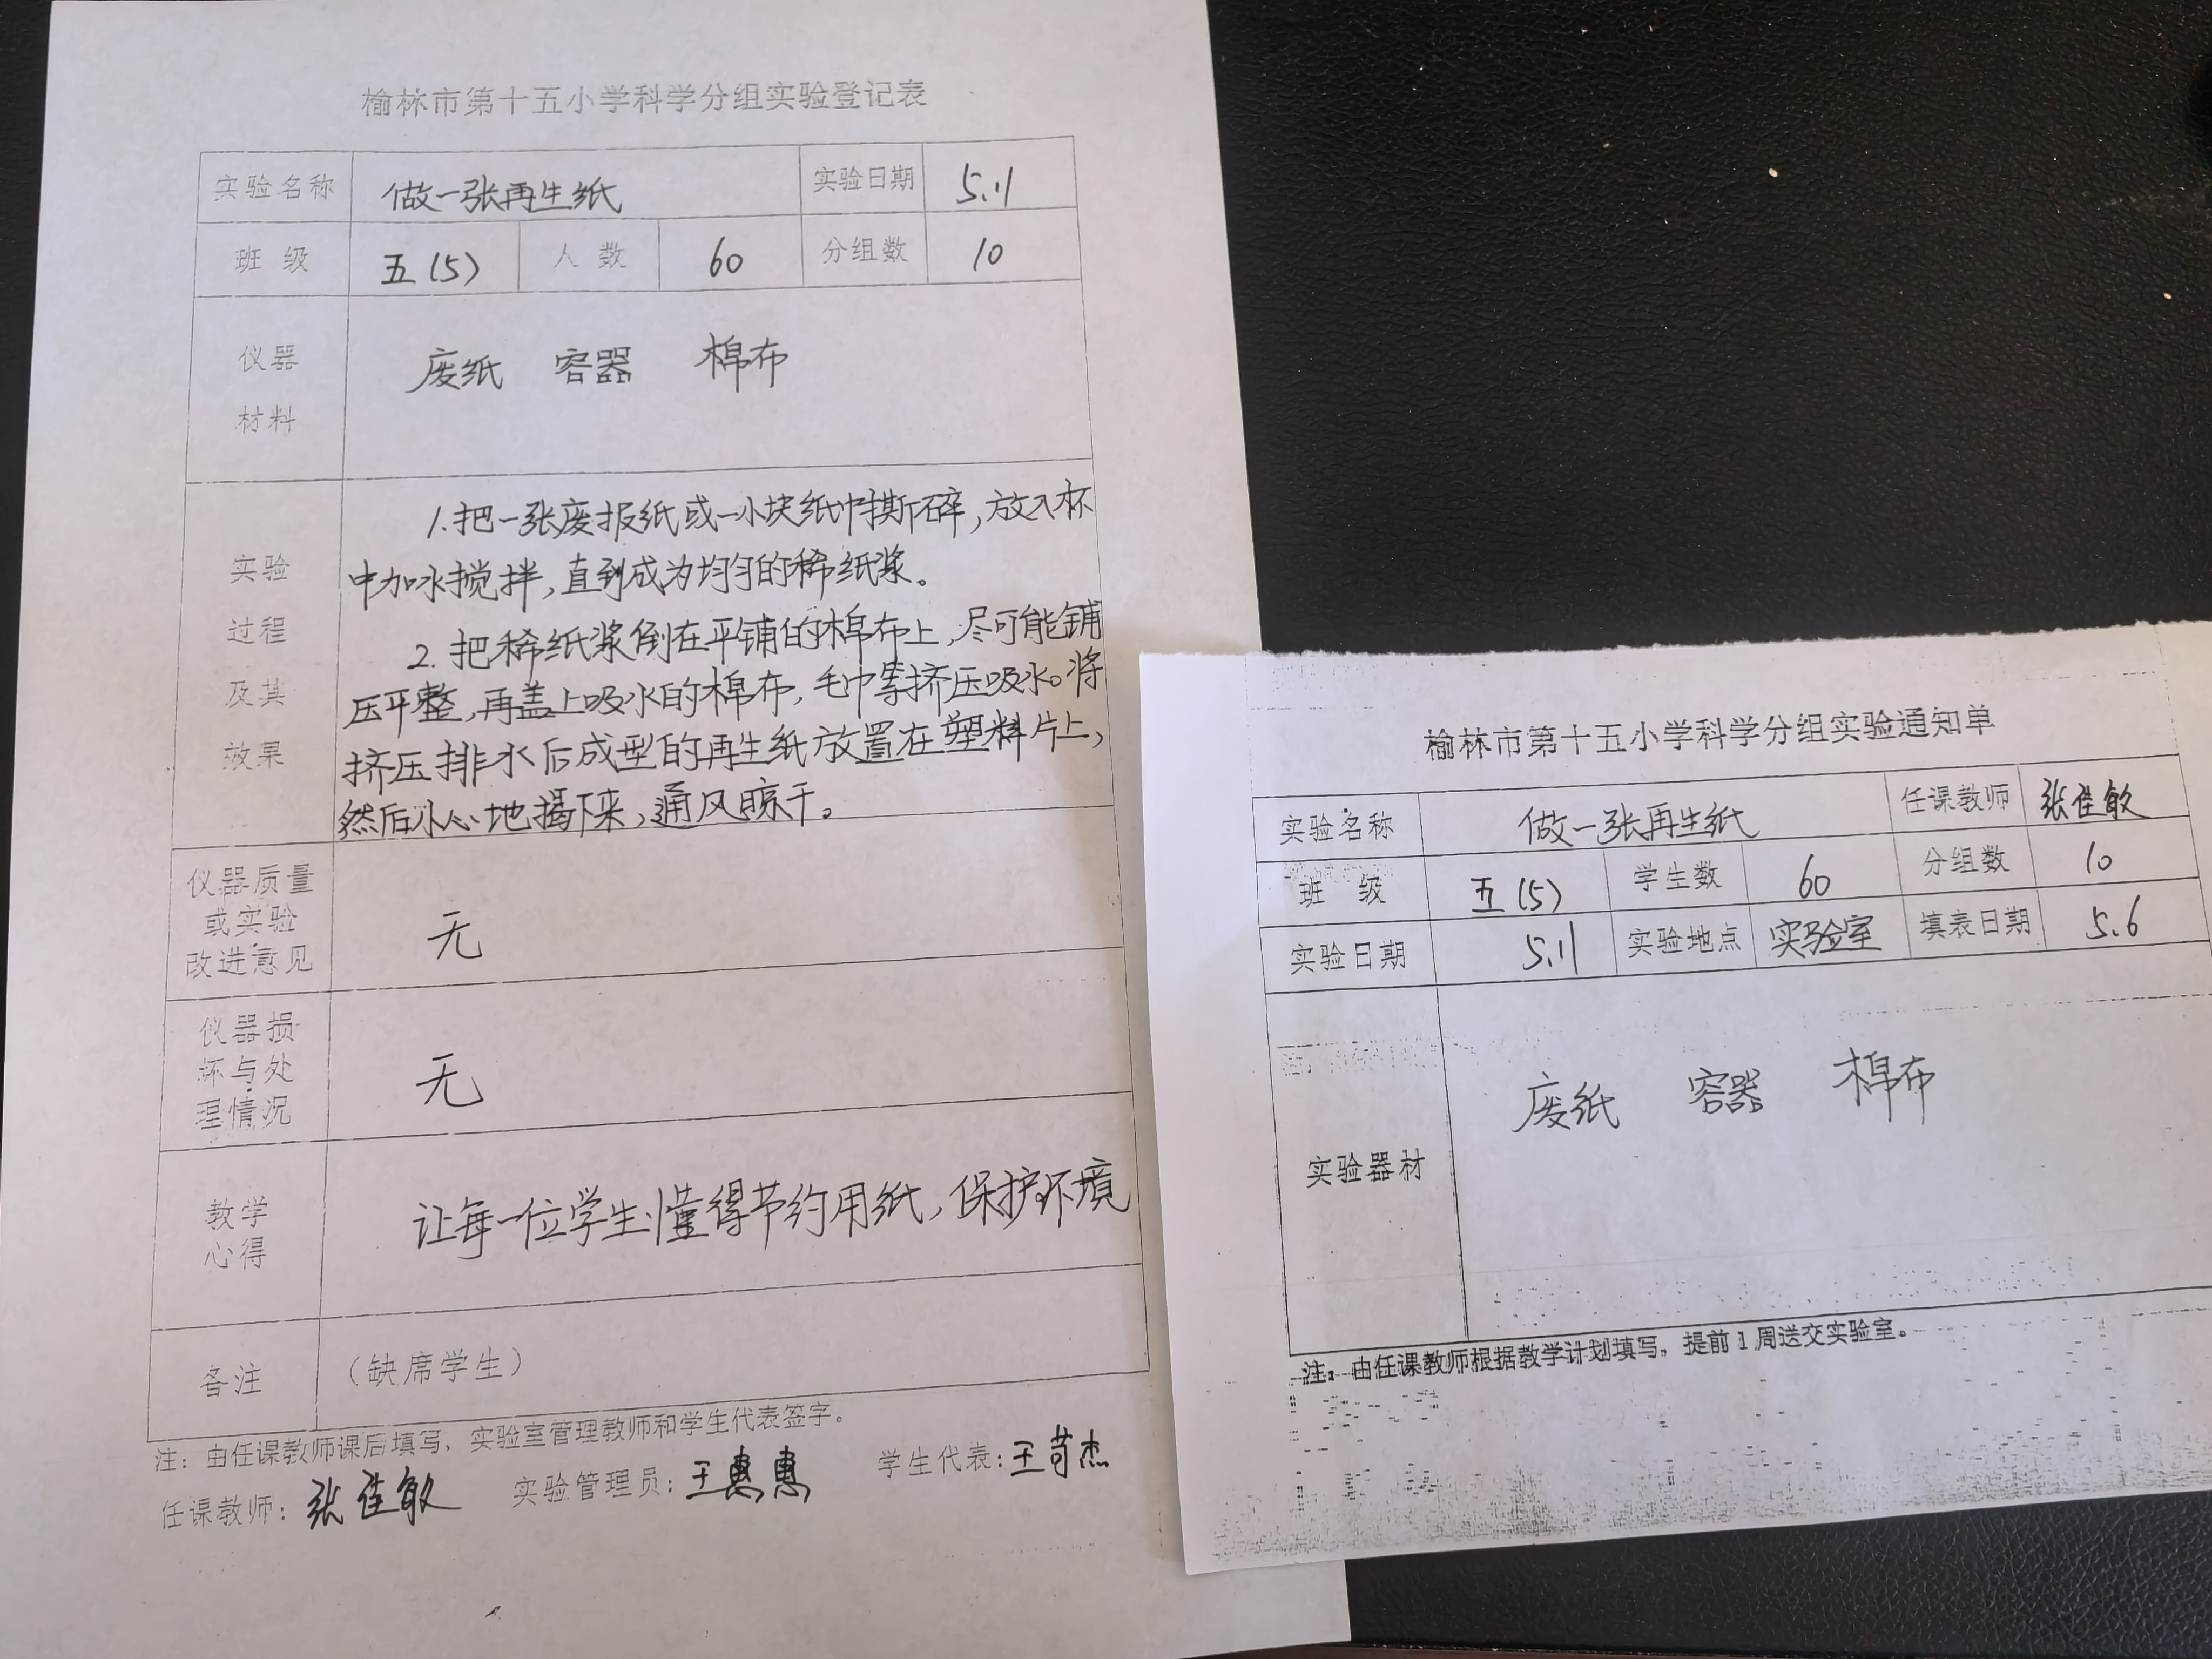 榆林市第十五小学科学分组实验登记表
实验名称 做一张再生纸 实验日期 5.11
班 级 五(5) 人 数 60 分组数 10
仪器
材料
废纸 容器 棉布
实验
过程
及其
效果
1.把一张废报纸或一小块纸巾撕碎,放入杯
中加水搅拌,直到成为均匀的稀纸浆。
2.把稀纸浆倒在平铺的棉布上,尽可能铺
压平整,再盖上吸水的棉布,毛巾等挤压吸水。将
挤压排水后成型的再生纸放置在塑料片上,
然后小心地揭下来,通风晾干。
仪器质量
或实验
改进意见
无
仪器损
坏与处
理情况
无
教学
心得
让每一位学生懂得节约用纸,保护环境
备注 (缺席学生)
注:由任课教师课后填写,实验室管理教师和学生代表签字。
任课教师:张佳敏 实验管理员:王惠惠 学生代表:王苛杰
榆林市第十五小学科学分组实验通知单
实验名称 做一张再生纸 任课教师 张佳敏
班 级 五(5) 学生数 60 分组数 10
实验日期 5.11 实验地点 实验室 填表日期 5.6
实验器材 废纸 容器 棉布
注:由任课教师根据教学计划填写,提前1周送交实验室。